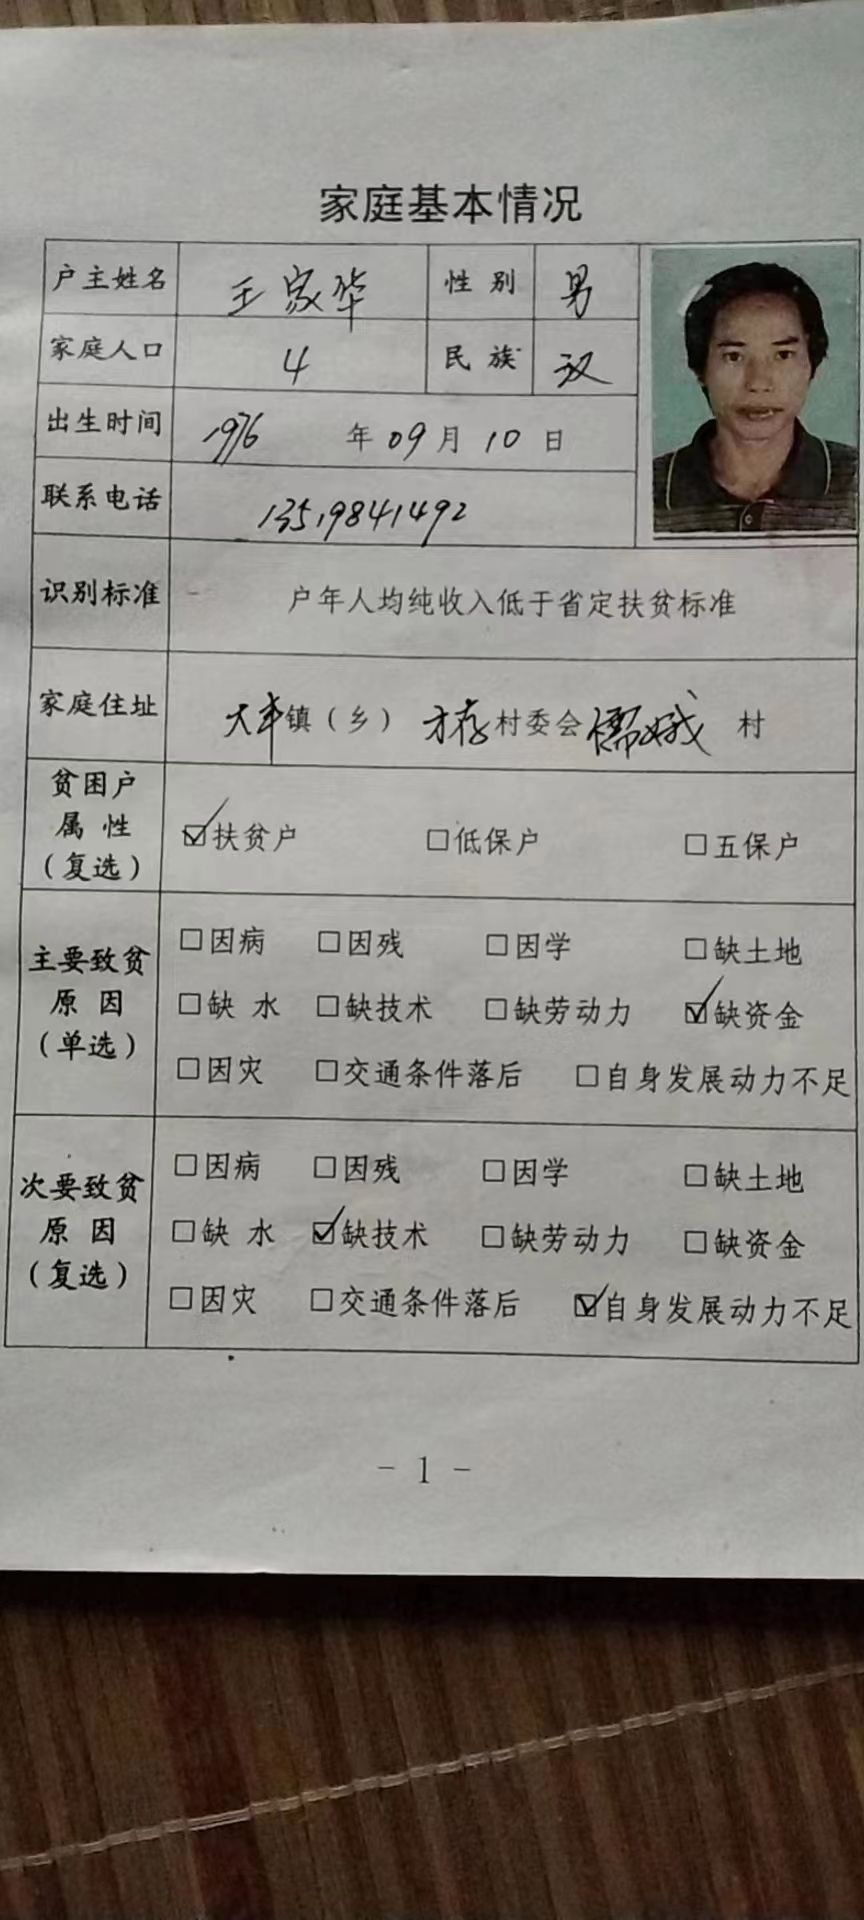 家庭基本情况
户主姓名 王家华 性别 男
家庭人口 4 民族 汉
出生时间 1976 年 09 月 10 日
联系电话 13519841492
识别标准 户年人均纯收入低于省定扶贫标准
家庭住址 大丰 镇（乡） 才存 村委会 儒娥 村
贫困户
属性
（复选）
☑扶贫户 □低保户 □五保户
主要致贫
原因
（单选）
□因病 □因残 □因学 □缺土地
□缺水 □缺技术 □缺劳动力 ☑缺资金
□因灾 □交通条件落后 □自身发展动力不足
次要致贫
原因
（复选）
□因病 □因残 □因学 □缺土地
□缺水 ☑缺技术 □缺劳动力 □缺资金
□因灾 □交通条件落后 ☑自身发展动力不足
- 1 -